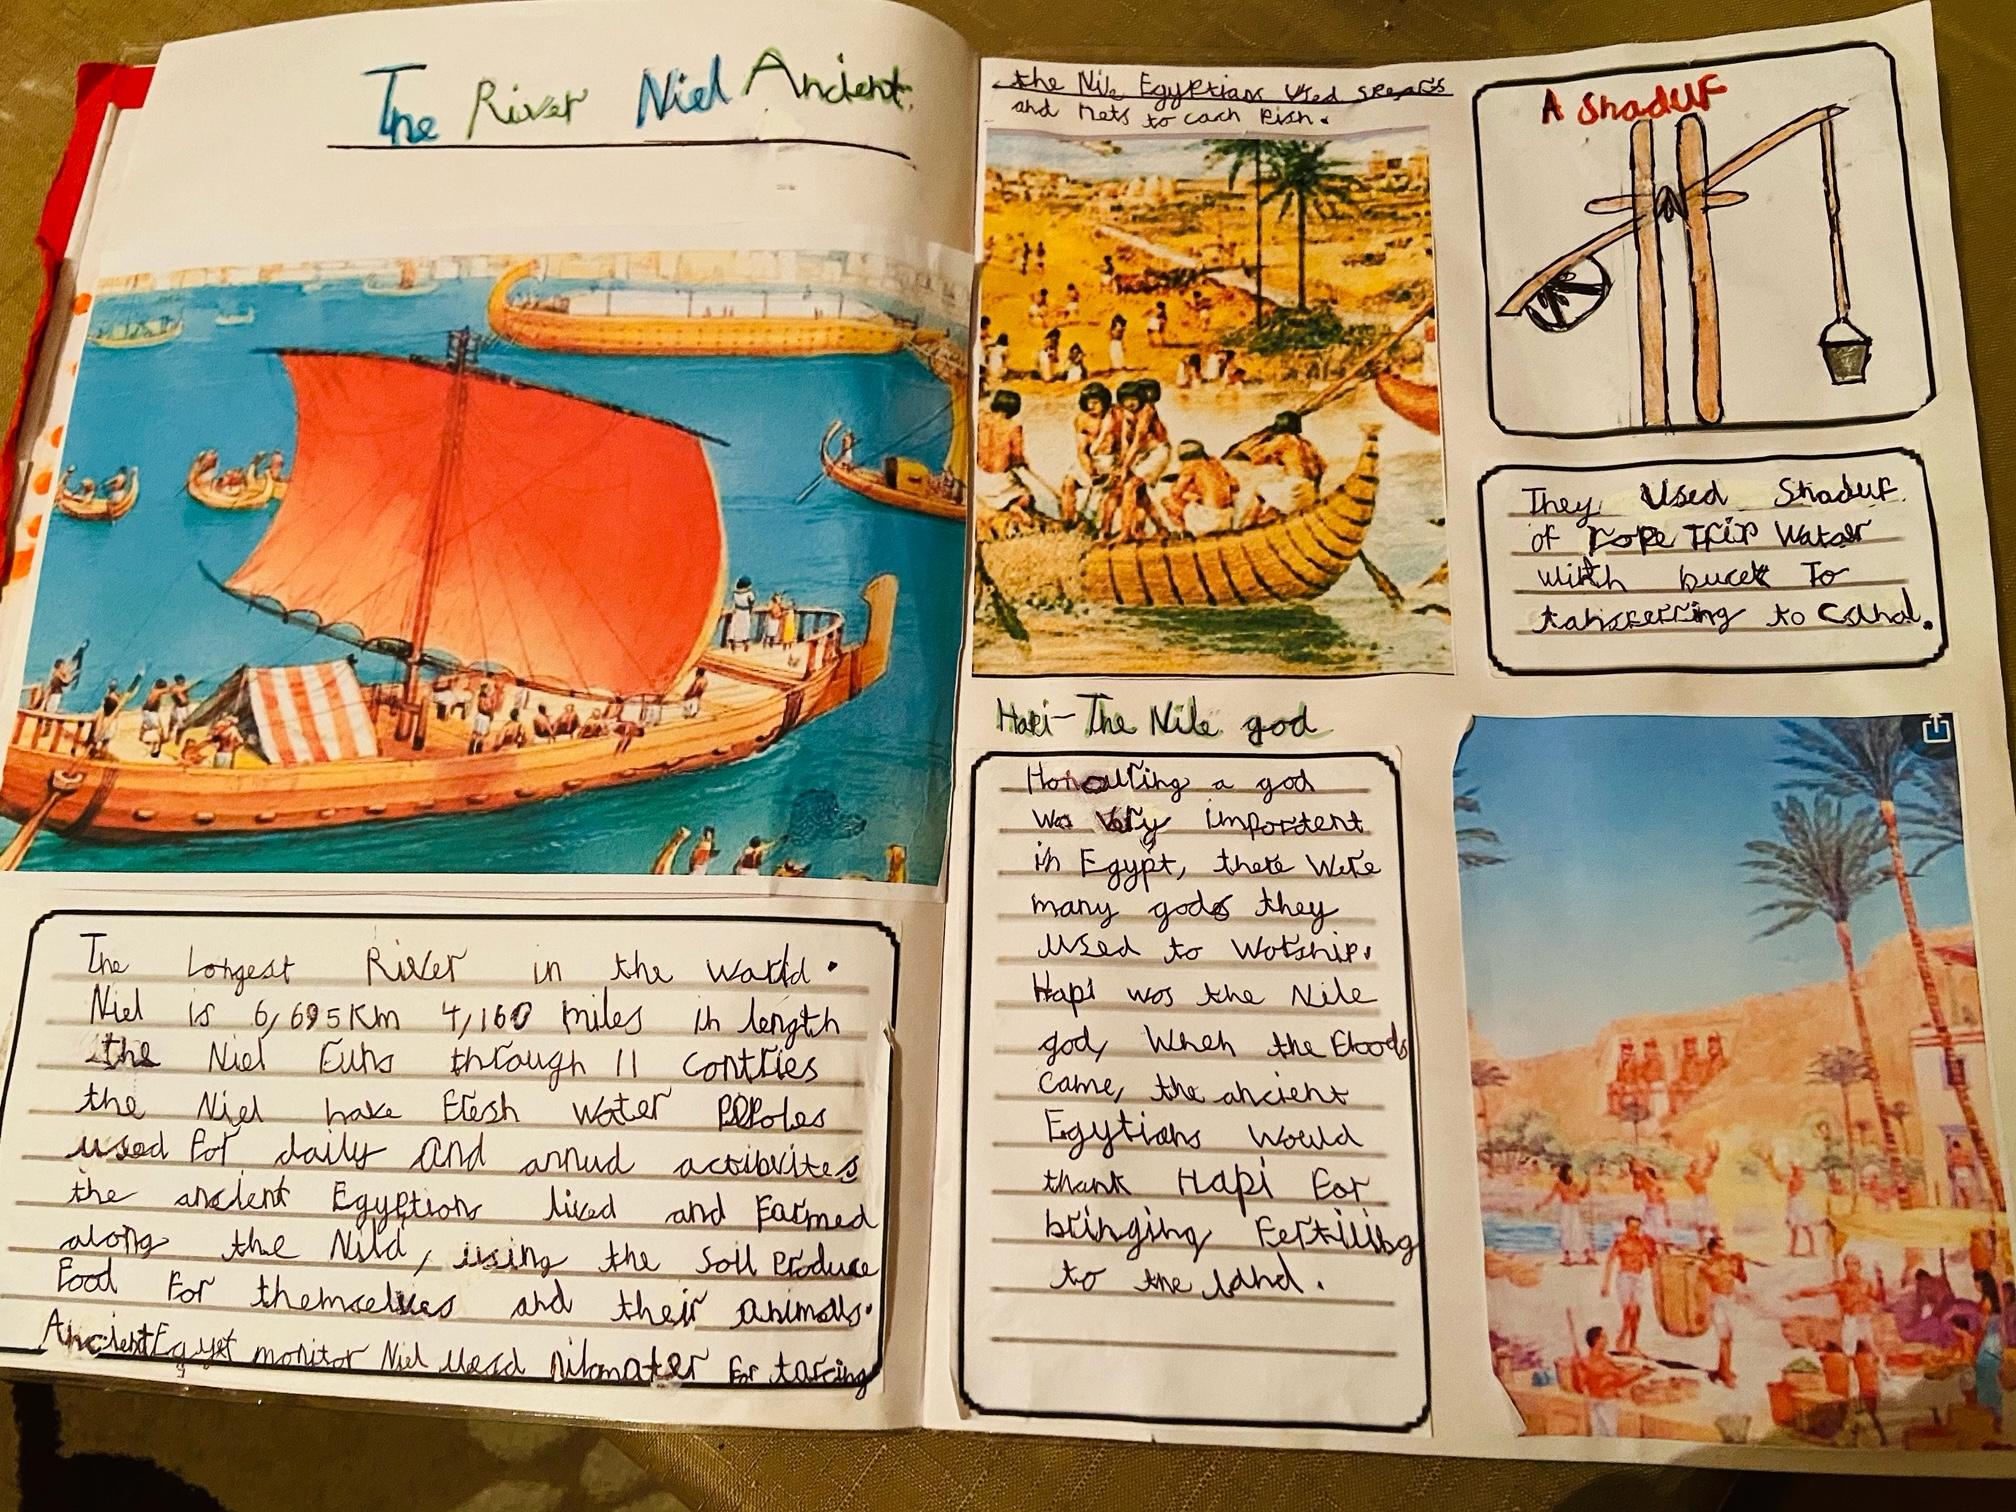 The River Niel Ancient.
The Longest River in the world.
Niel is 6,695Km 4,160 miles in length
the Niel runs through 11 contries
the Niel hake fresh water PePoles
used for daily and annud actibvites
the ancient Egyptions lived and farmed
along the Nild, using the soil produce
food for themselves and their animalls.
Ancient Egyet monitor Niel used nilomater for tarcing
the Nile Egyptians used spears
and nets to cach fish.
Hapi - The Nile god
Honouring a god
wa very importent
in Egypt, there were
many gods they
used to worship.
Hapi was the Nile
god, when the floods
came, the ancient
Egytians would
thank Hapi for
bringing fertiliby
to the land.
A Shaduf
They used Shaduf
of rope Trip water
with bucet To
tansferring to canal.